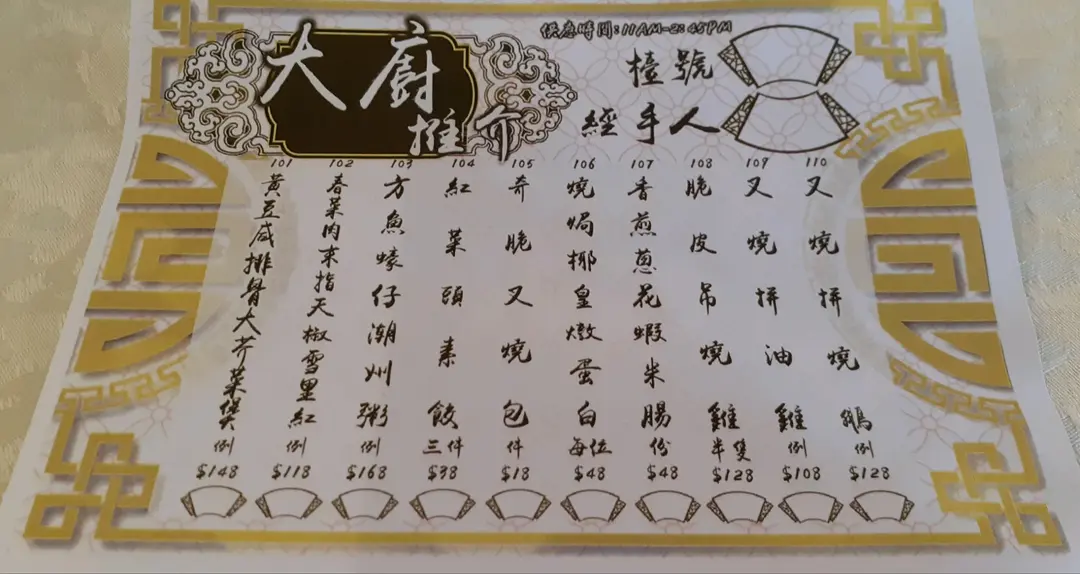 大廚推介
供應時間:11AM-2:45PM
檯號
經手人
101
黃豆咸排骨大芥菜煲
例
$148
102
春菜肉末指天椒雪里紅
例
$118
103
方魚蠔仔潮州粥
例
$168
104
紅菜頭素餃
三件
$38
105
奇脆叉燒包
件
$18
106
燒焗椰皇燉蛋白
每位
$48
107
香煎蔥花蝦米腸
份
$48
108
脆皮吊燒雞
半隻
$128
109
叉燒拼油雞
例
$108
110
叉燒拼燒鵝
例
$128